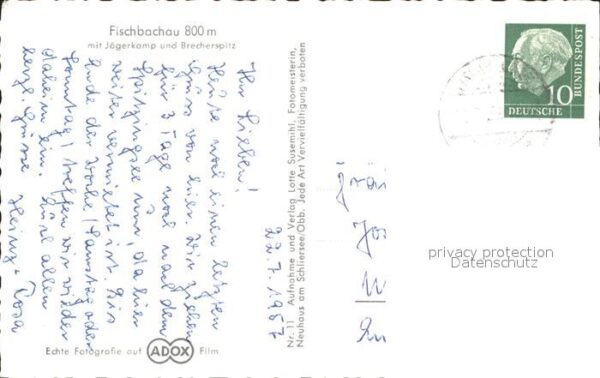 Fischbachau 800 m
mit Jägerkamp und Brecherspitz
Ihr Lieben!
Heute noch einen letzten
Gruss von hier. Wir ziehen
für 3 Tage noch nach dem
Spitzingsee um, da hier
weiter vermietet ist. Bis
Ende der Woche (Samstag oder
Sonntag) treffen wir wieder
daheim ein. Euch allen
herzl. Grüsse
Heinz + Rosa
22.7.1957
Nr. 11 Aufnahme und Verlag Lotte Susemihl, Fotomeisterin,
Neuhaus am Schliersee/Obb. Jede Art Vervielfältigung verboten
Echte Fotografie auf ADOX Film
10
DEUTSCHE
BUNDESPOST
privacy protection
Datenschutz